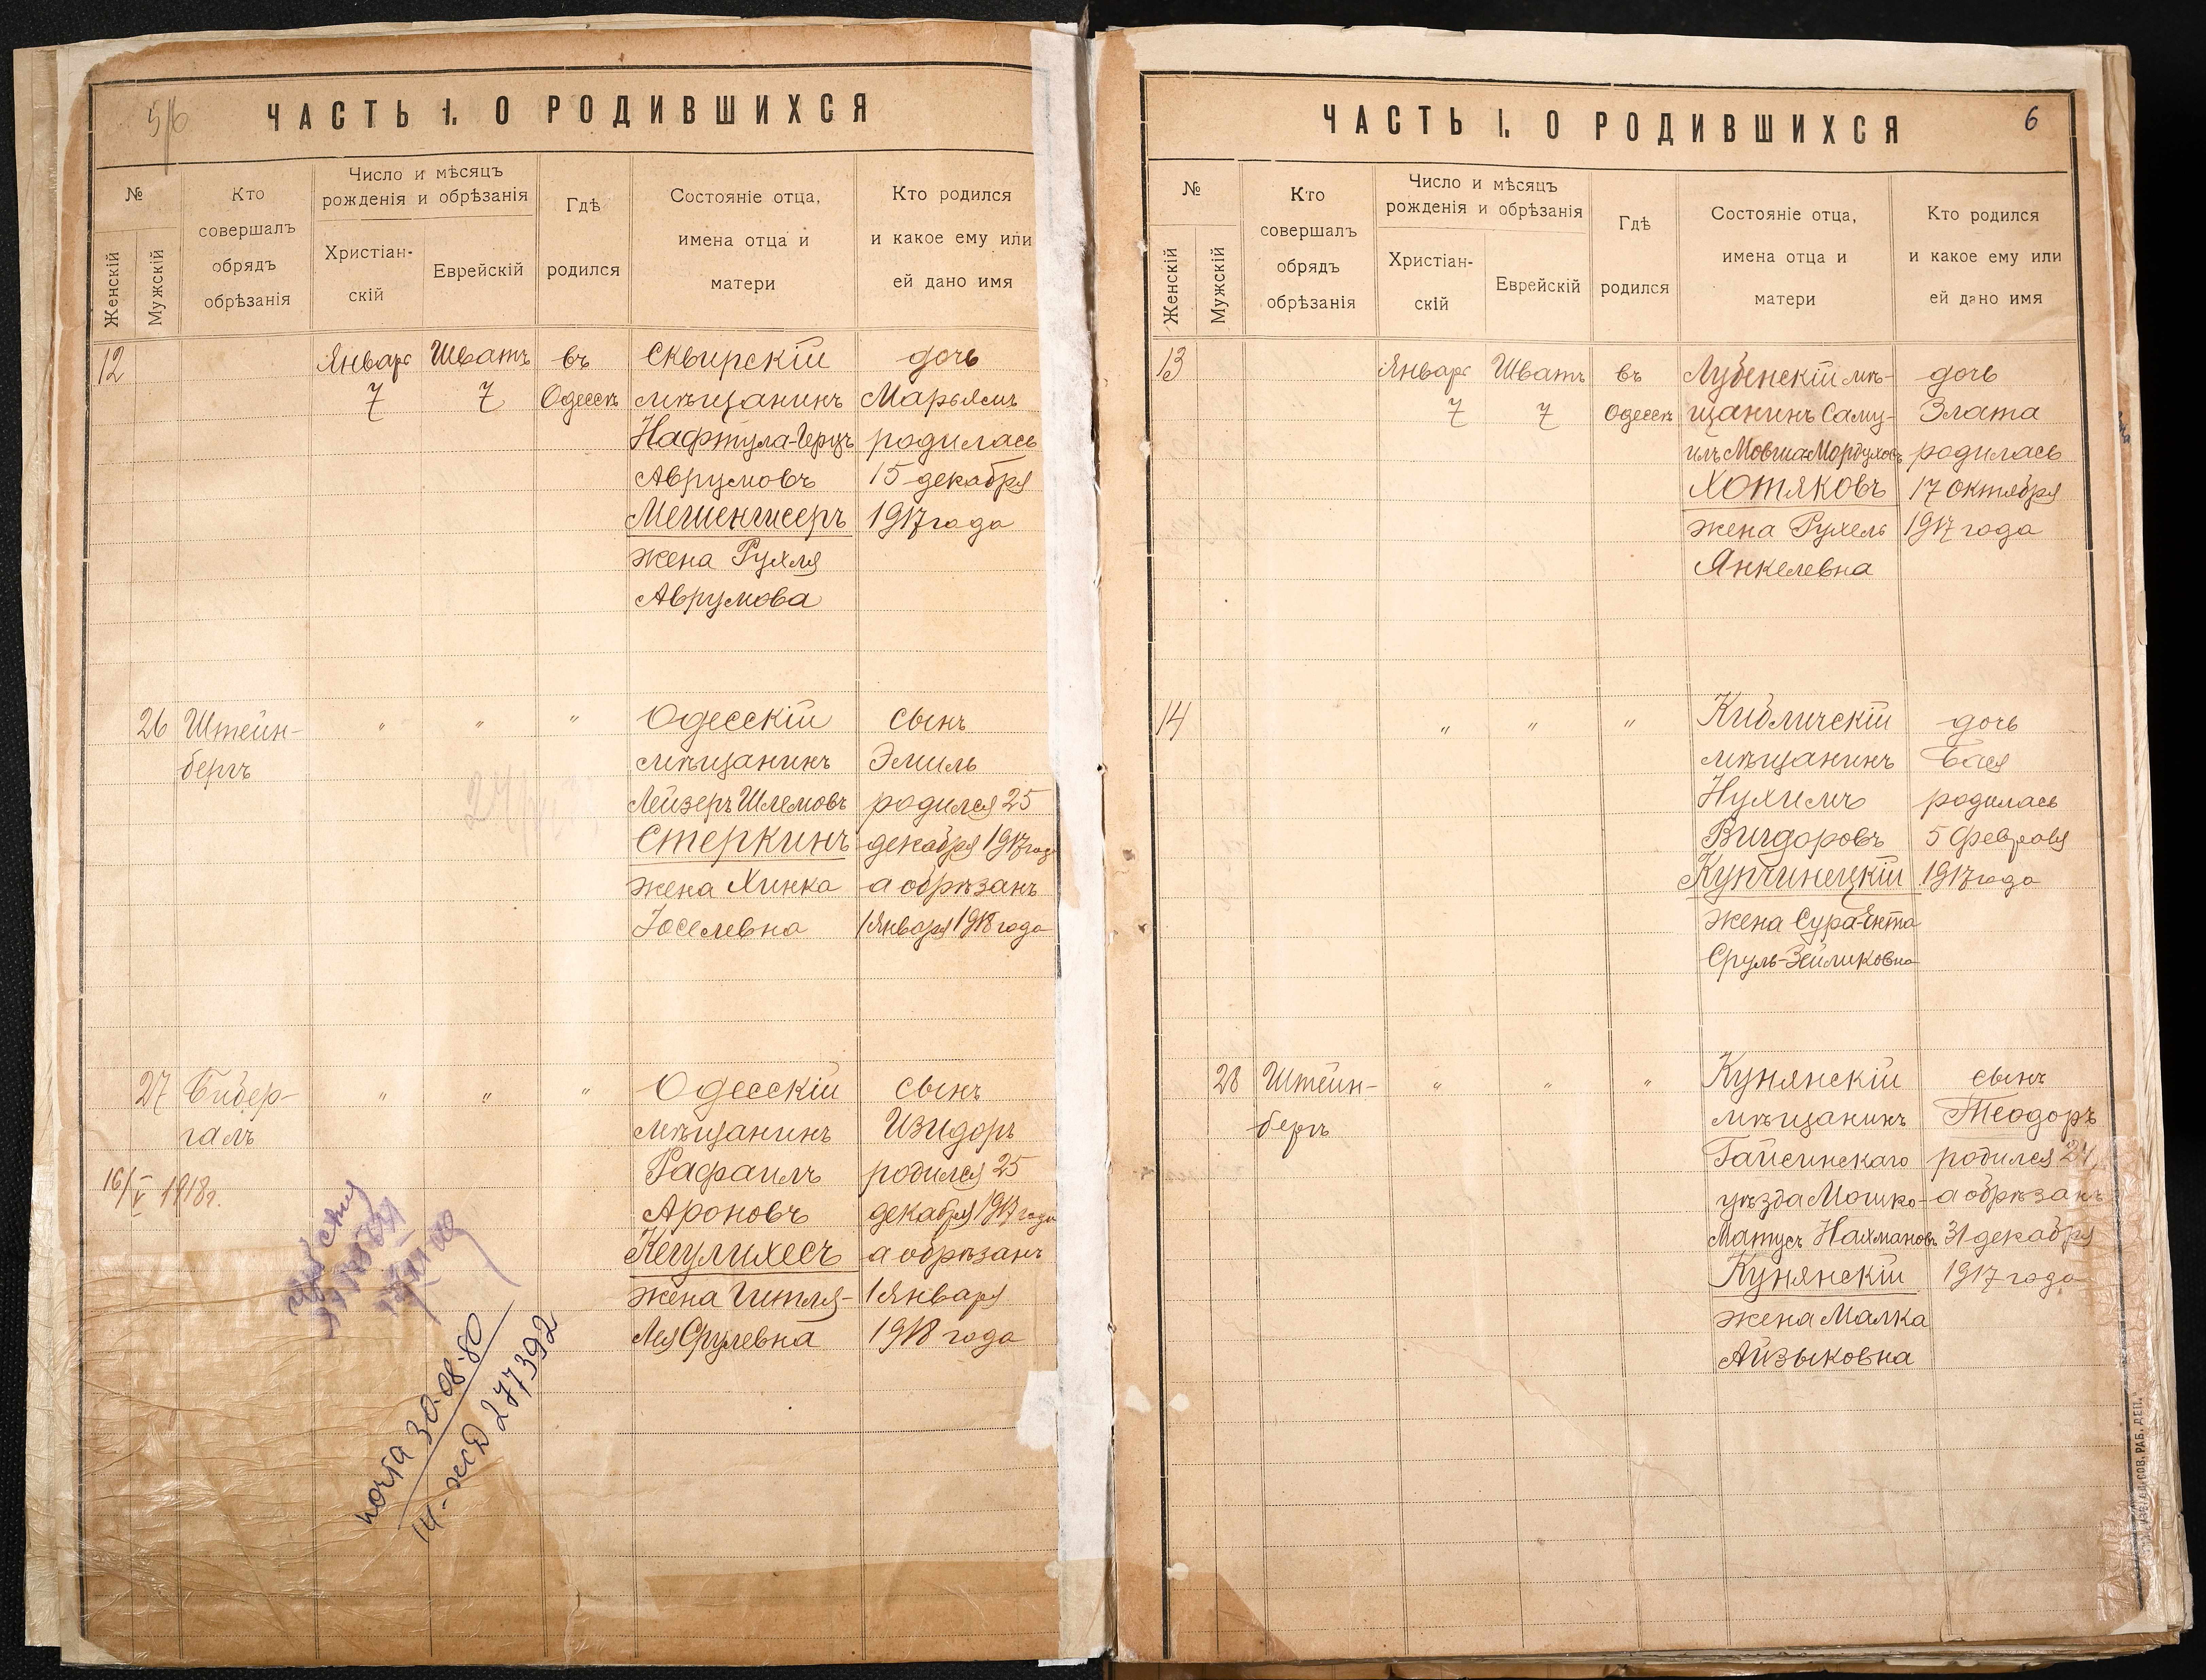 5/6
ЧАСТЬ I. О РОДИВШИХСЯ
№
Женскій
Мужскій
Кто
совершалъ
обрядъ
обрѣзанія
Число и мѣсяцъ
рожденія и обрѣзанія
Христіан-
скій
Еврейскій
Гдѣ
родился
Состояніе отца,
имена отца и
матери
Кто родился
и какое ему или
ей дано имя
12
Январь
7
Шватъ
7
въ
Одессѣ
Сквирскій
мѣщанинъ
Нафтула-Герцъ
Аврумовъ
Мешенгисеръ
жена Рухля
Аврумова
дочь
Марьясъ
родилась
15 декабря
1917 года
26
Штейн-
бергъ
"
"
"
Одесскій
мѣщанинъ
Лейзеръ Шлемовъ
Стеркинъ
жена Хинка
Іоселевна
сынъ
Эмиль
родился 25
декабря 1917 года
а обрѣзанъ
1 Января 1918 года
27
Бибер-
галъ
16/V 1918г.
"
"
"
Одесскій
мѣщанинъ
Рафаилъ
Ароновъ
Кегулихесъ
жена Гитля-
Лея Срулевна
сынъ
Изидоръ
родился 25
декабря 1917 года
а обрѣзанъ
1 Января
1918 года
почта 30.08.80
277392
ЧАСТЬ I. О РОДИВШИХСЯ
6
№
Женскій
Мужскій
Кто
совершалъ
обрядъ
обрѣзанія
Число и мѣсяцъ
рожденія и обрѣзанія
Христіан-
скій
Еврейскій
Гдѣ
родился
Состояніе отца,
имена отца и
матери
Кто родился
и какое ему или
ей дано имя
13
Январь
7
Шватъ
7
въ
Одессѣ
Лубенскій мѣ-
щанинъ Саму-
илъ Мовша-Мордуховъ
Хотяковъ
жена Рухель
Янкелевна
дочь
Злата
родилась
17 Октября
1917 года
14
"
"
"
Кибличскій
мѣщанинъ
Нухимъ
Вигдоровъ
Купчинецкій
жена Сура-Ента
Сруль-Зейликовна
дочь
Бася
родилась
5 Февраля
1917 года
28
Штейн-
бергъ
"
"
"
Кунянскій
мѣщанинъ
Гайсинскаго
уѣзда Мошко-
Матусъ Нахмановъ
Кунянскій
жена Малка
Айзыковна
сынъ
Теодоръ
родился 24,
а обрѣзанъ
31 декабря
1917 года